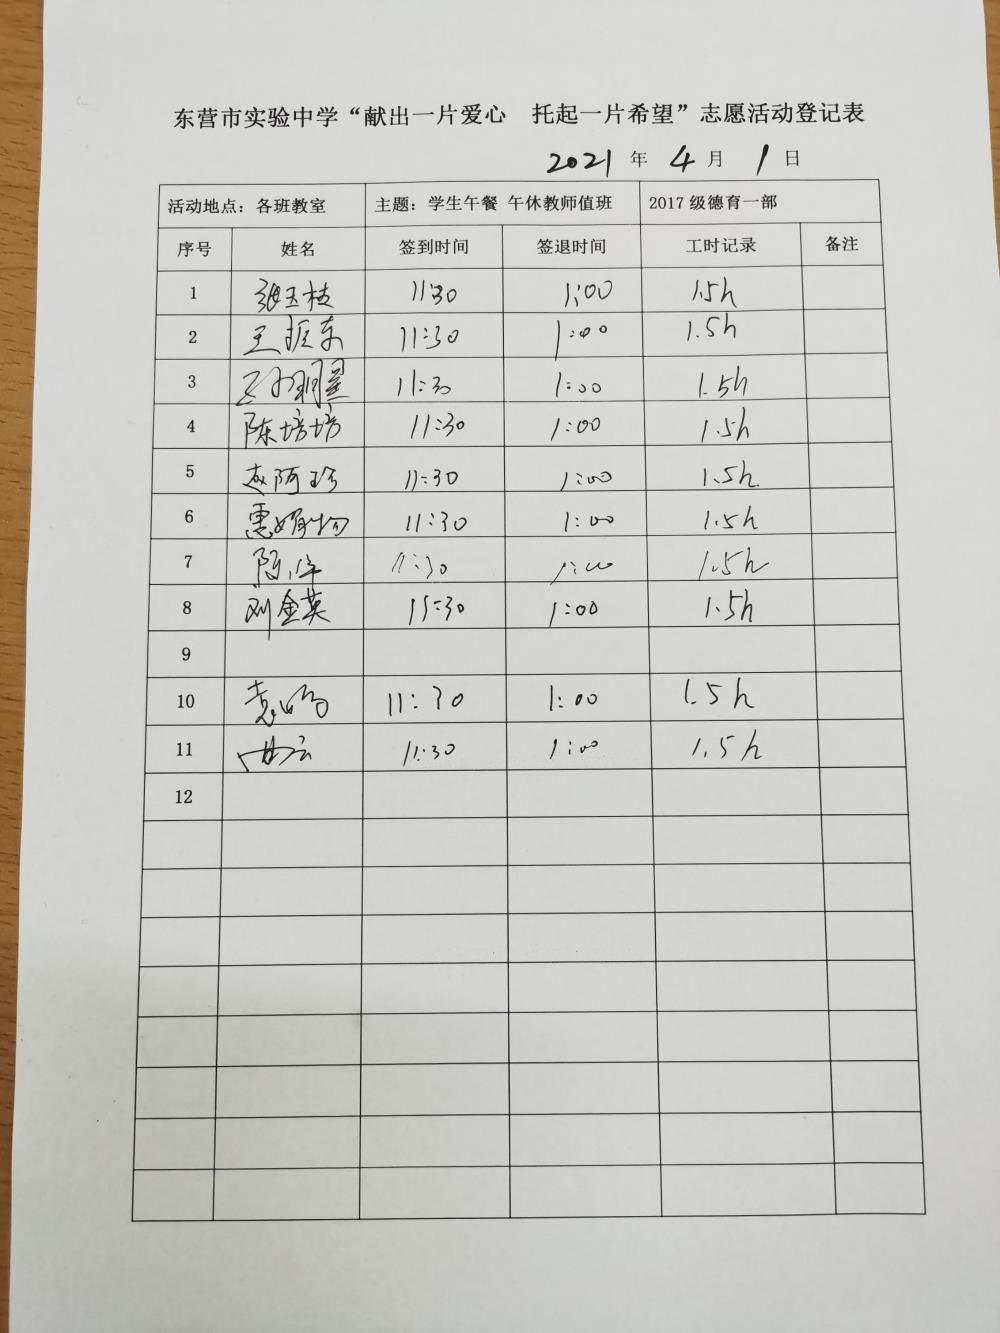 东营市实验中学“献出一片爱心 托起一片希望”志愿活动登记表
2021 年 4 月 1 日
活动地点：各班教室 主题：学生午餐 午休教师值班 2017 级德育一部
序号 姓名 签到时间 签退时间 工时记录 备注
1 张玉枝 11:30 1:00 1.5h
2 王振东 11:30 1:00 1.5h
3 11:30 1:00 1.5h
4 陈培培 11:30 1:00 1.5h
5 赵阿珍 11:30 1:00 1.5h
6 11:30 1:00 1.5h
7 11:30 1:00 1.5h
8 刘金英 11:30 1:00 1.5h
9
10 11:30 1:00 1.5h
11 11:30 1:00 1.5h
12